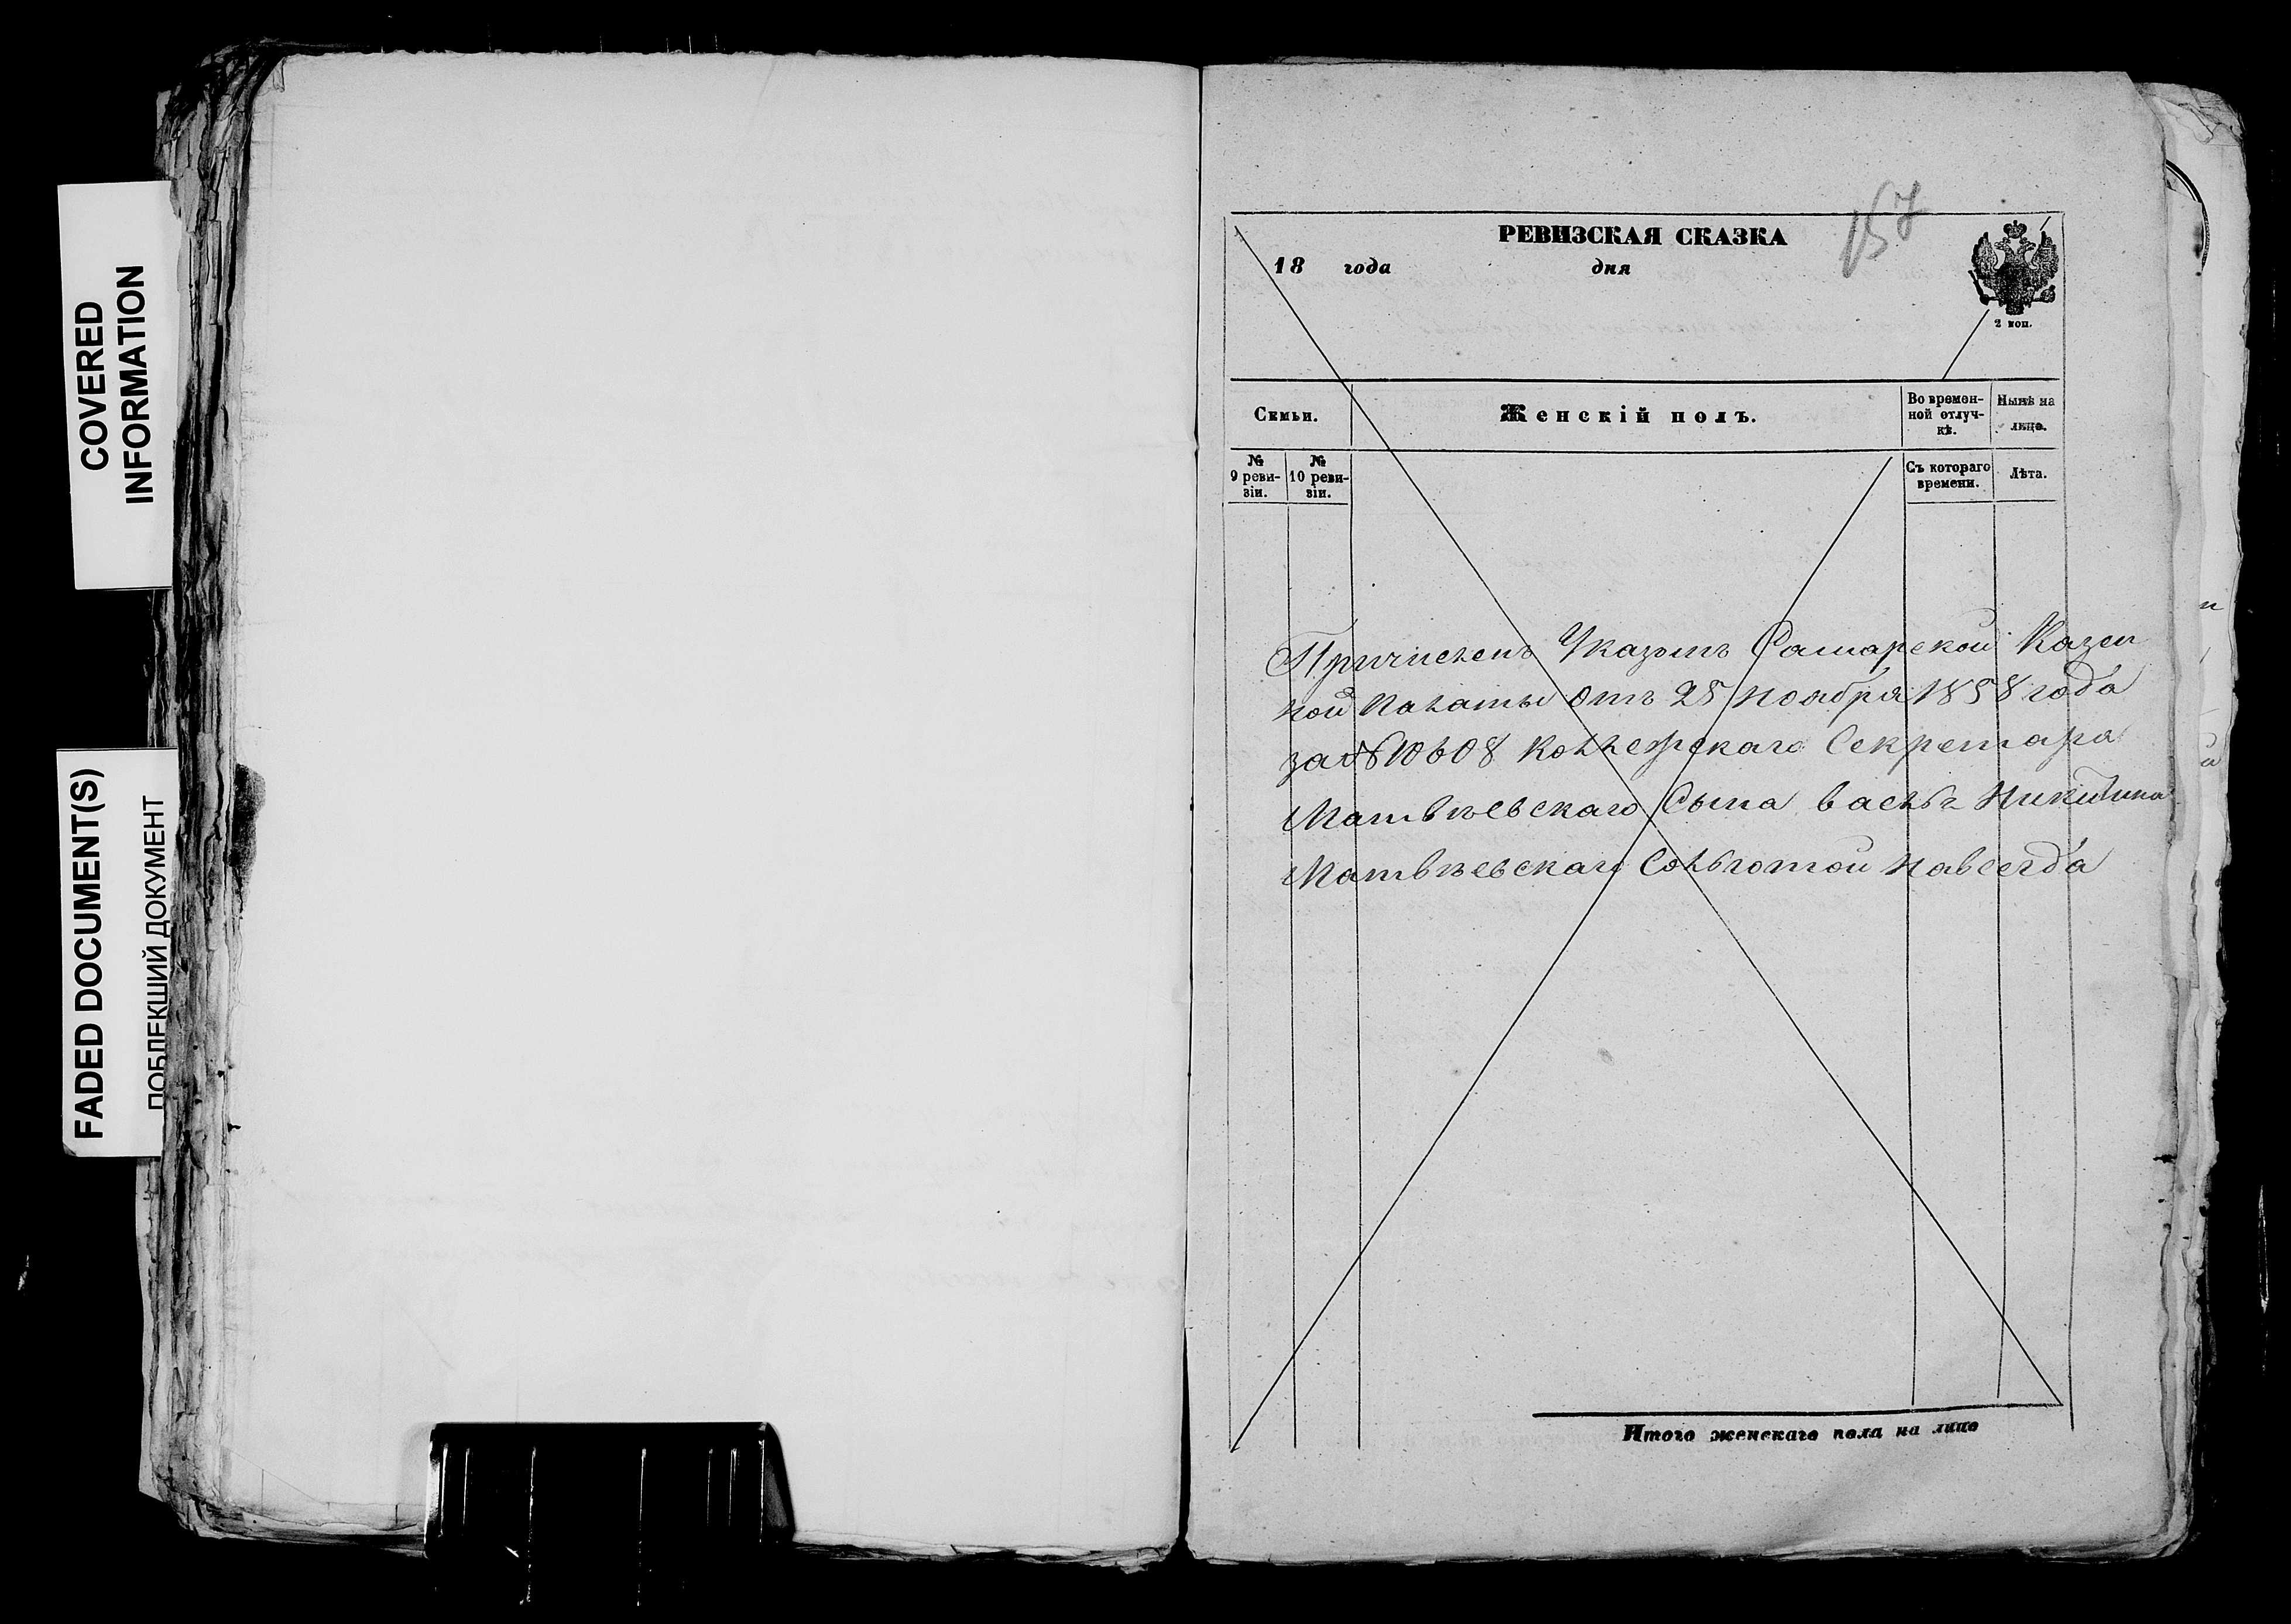 COVERED
INFORMATION
FADED DOCUMENT(S)
ПОБЛЕКШИЙ ДОКУМЕНТ
157
РЕВИЗСКАЯ СКАЗКА
18 года дня
2 коп.
Семьи.
Женскій полъ.
Во времен-
ной отлуч-
кѣ.
Нынѣ на
лицо.
№
9 реви-
зіи.
№
10 реви-
зіи.
Съ котораго
времени.
Лѣта.
Причисленъ Указомъ Самарской Казен
ной палаты отъ 28 ноября 1858 года
за № 10608 Коллежскаго Секретаря
Матвѣевскаго Сына Никитина
Матвѣевскаго Сольготой навсегда
Итого женскаго пола на лицо